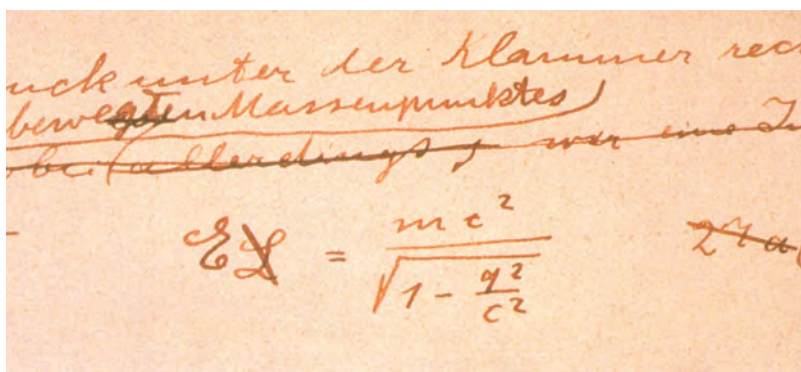 uck unter der Klammer rec
bewegten Massenpunktes)
(allerdings, war eine
E L = mc² / √(1 - q²/c²)
27a(